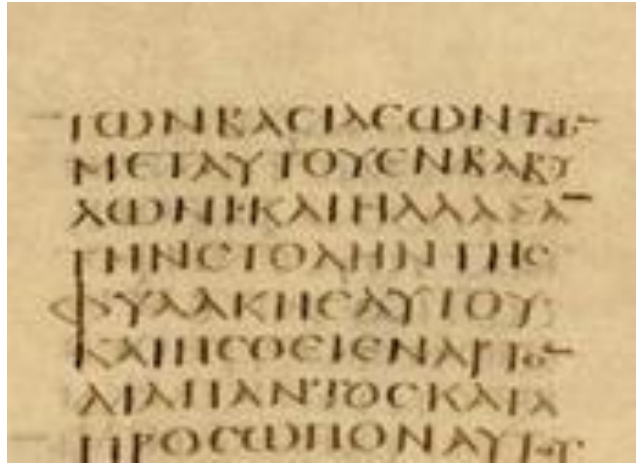 ΤΩΝΒΑϹΙΛΕΩΝΤΩ̅
ΜΕΤΑΥΤΟΥΕΝΒΑΒΥ
ΛΩΝΙ·ΚΑΙΗΛΛΑΞΕ̅
ΤΗΝϹΤΟΛΗΝΤΗϹ
ΦΥΛΑΚΗϹΑΥΤΟΥ
ΚΑΙΗϹΘΕΙΕΝΑΡΤΟ̅
ΔΙΑΠΑΝΤΟϹΚΑΤΑ
ΠΡΟϹΩΠΟΝΑΥΤΟΥ